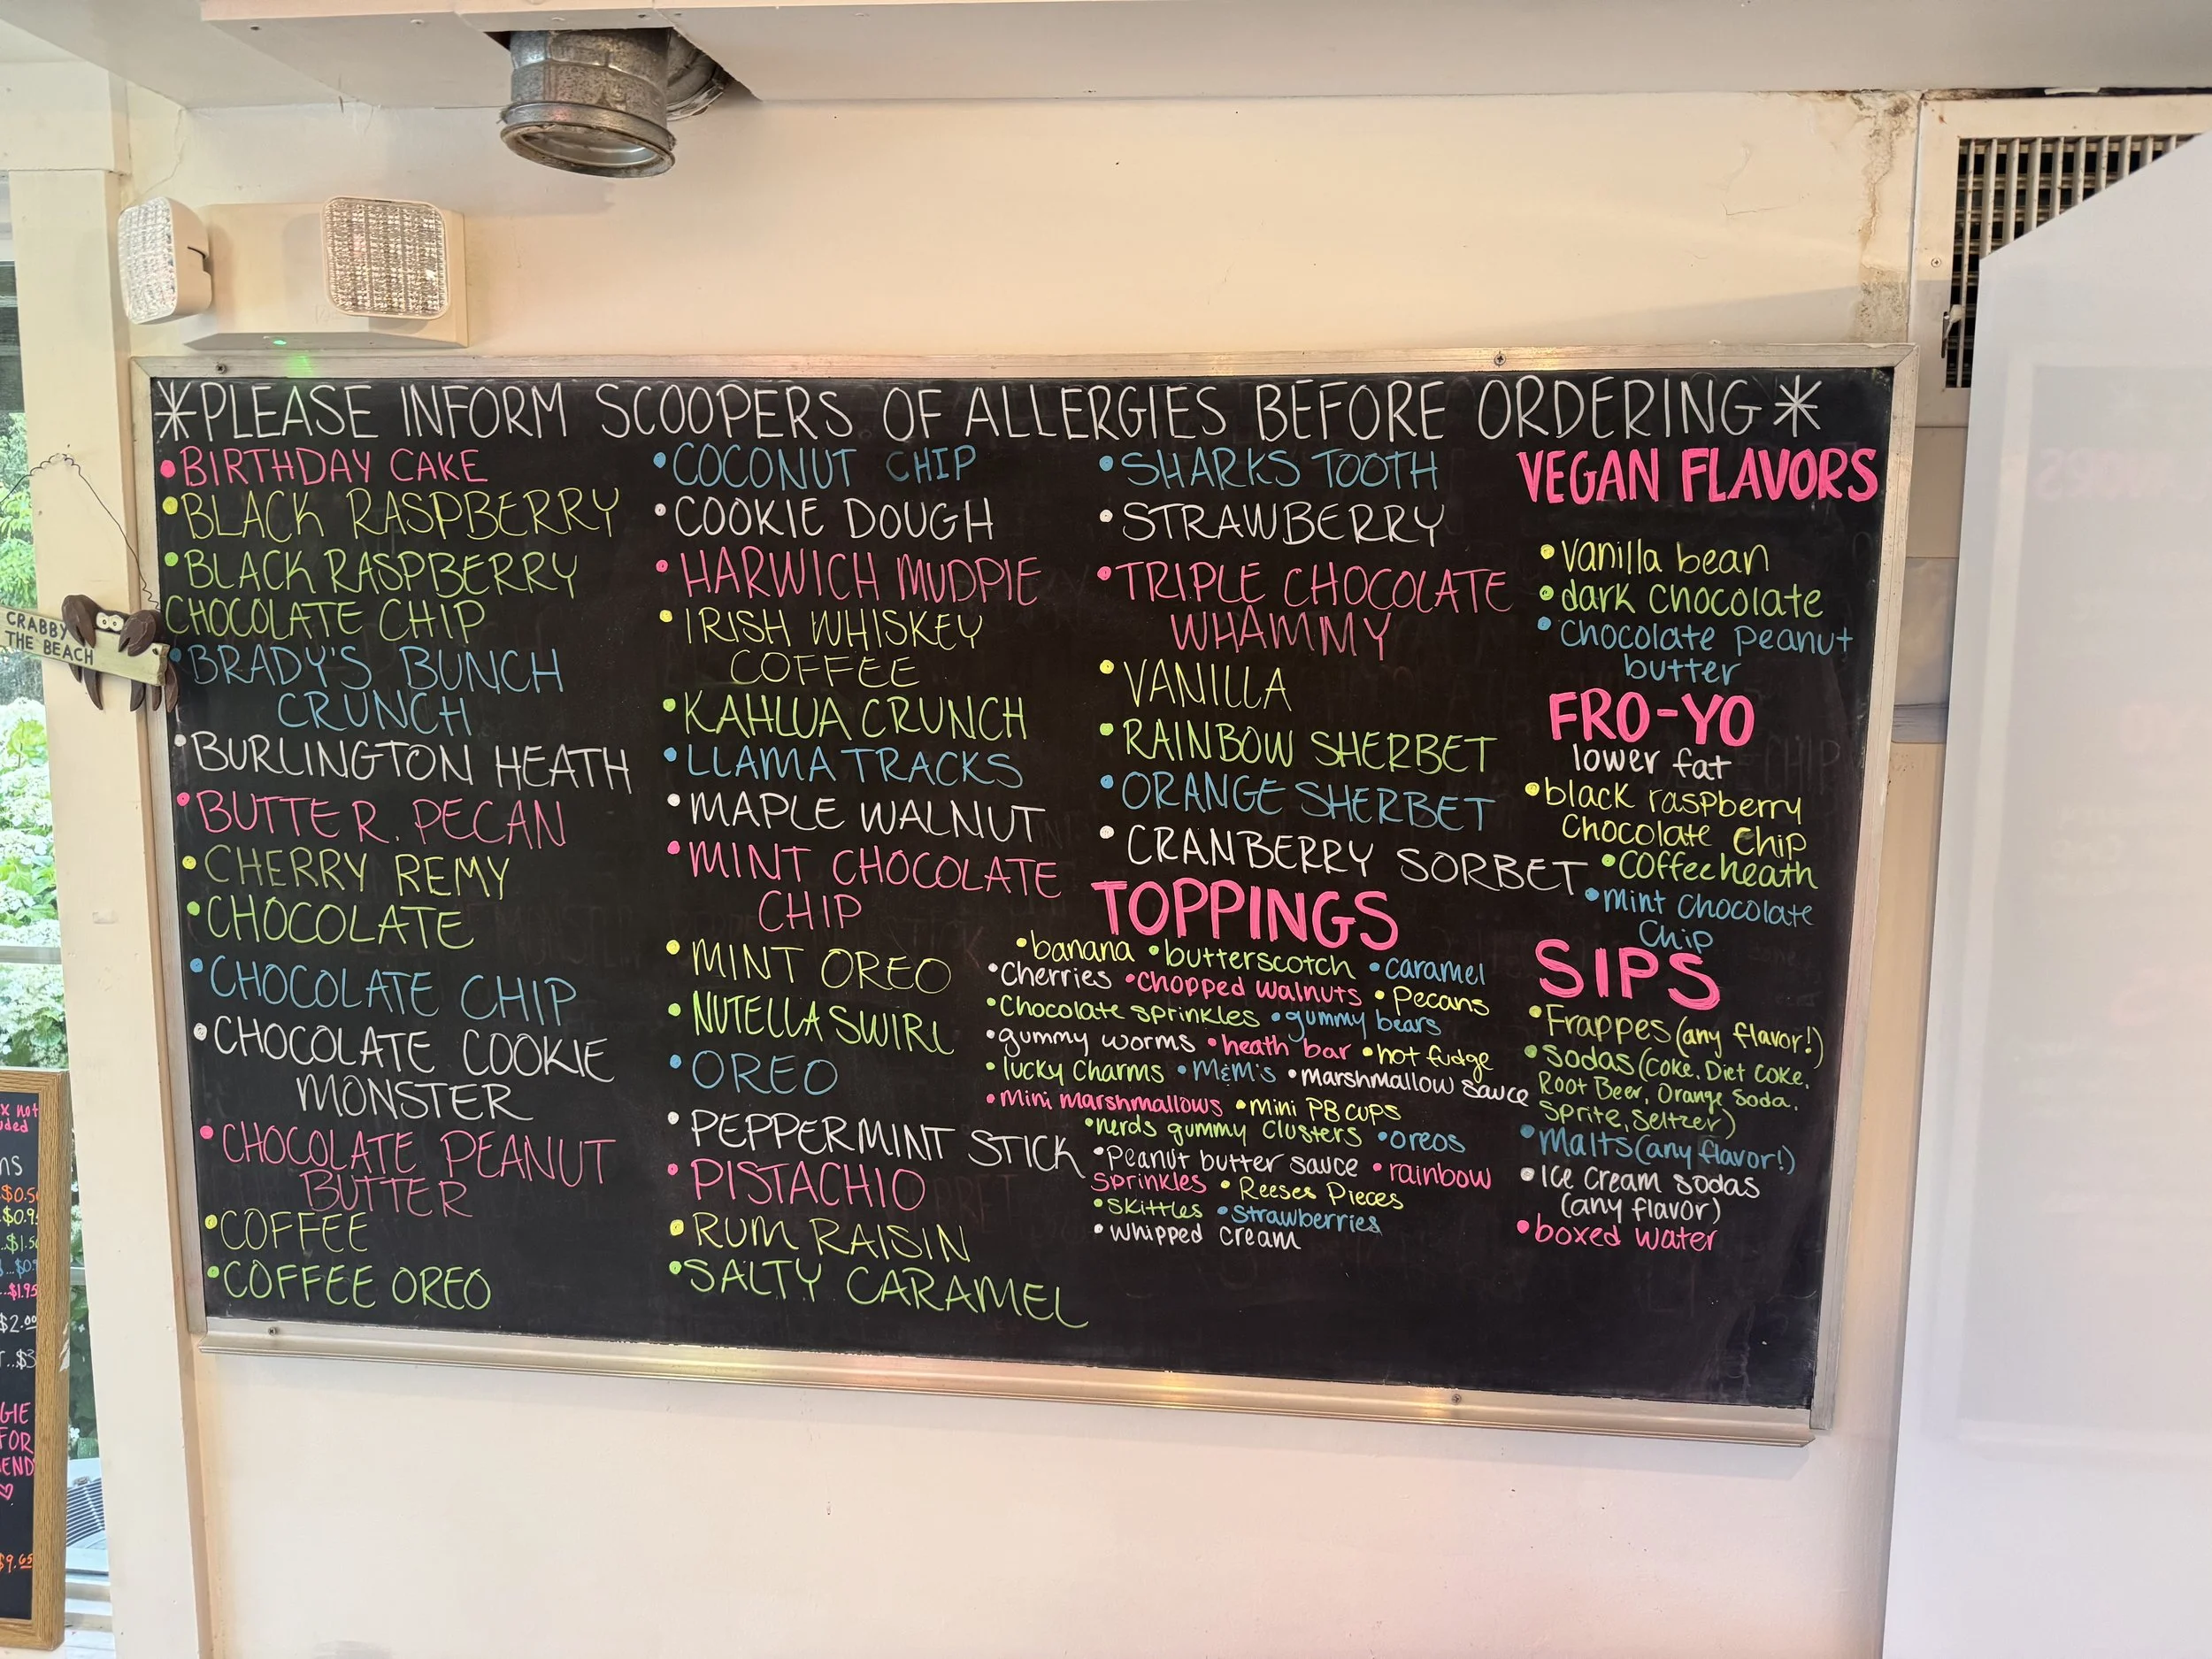 *PLEASE INFORM SCOOPERS OF ALLERGIES BEFORE ORDERING*
•BIRTHDAY CAKE
•BLACK RASPBERRY
•BLACK RASPBERRY
CHOCOLATE CHIP
•BRADY'S BUNCH
CRUNCH
•BURLINGTON HEATH
•BUTTER PECAN
•CHERRY REMY
•CHOCOLATE
•CHOCOLATE CHIP
•CHOCOLATE COOKIE
MONSTER
•CHOCOLATE PEANUT
BUTTER
•COFFEE
•COFFEE OREO
•COCONUT CHIP
•COOKIE DOUGH
•HARWICH MUDPIE
•IRISH WHISKEY
COFFEE
•KAHLUA CRUNCH
•LLAMA TRACKS
•MAPLE WALNUT
•MINT CHOCOLATE
CHIP
•MINT OREO
•NUTELLA SWIRL
•OREO
•PEPPERMINT STICK
•PISTACHIO
•RUM RAISIN
•SALTY CARAMEL
•SHARKS TOOTH
•STRAWBERRY
•TRIPLE CHOCOLATE
WHAMMY
•VANILLA
•RAINBOW SHERBET
•ORANGE SHERBET
•CRANBERRY SORBET
TOPPINGS
•banana •butterscotch •caramel
•Cherries •Chopped walnuts •Pecans
•Chocolate sprinkles •gummy bears
•gummy worms •heath bar •hot fudge
•lucky Charms •M&M's •marshmallow sauce
•Mini marshmallows •Mini PB cups
•nerds gummy Clusters •oreos
•Peanut butter sauce •rainbow
Sprinkles •Reeses Pieces
•Skittles •Strawberries
•whipped cream
VEGAN FLAVORS
•Vanilla bean
•dark chocolate
•Chocolate Peanut
butter
FRO-YO
lower fat
•black raspberry
Chocolate Chip
•Coffee heath
•Mint Chocolate
Chip
SIPS
•Frappes (any flavor!)
•Sodas (Coke, Diet Coke,
Root Beer, Orange Soda,
Sprite, Seltzer)
•Malts (any flavor!)
•Ice Cream sodas
(any flavor)
•boxed water
CRABBY
THE BEACH
x not
$0.5
$0.9
$1.5
...$1.95
$2.00
...$3
GIE
FOR
END
$9.65